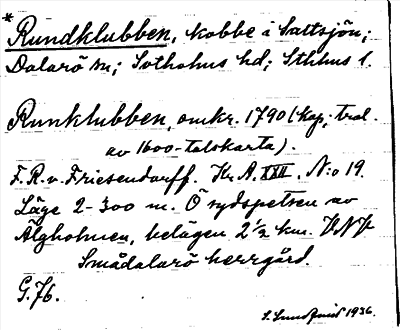 *
Rundklubben, kobbe i Saltsjön;
Dalarö sn; Sotholms hd; Sthlms l.
Runklubben, omkr. 1790 (kop. trol.
av 1600-talskarta).
F. R. v. Friesendorff. Kr. A. XXII. N:o 19.
Läge 2-300 m. Ö sydspetsen av
Älgholmen, belägen 2½ km. VNV
Smådalarö herrgård.
G. 76.
S. Lundqvist 1936.